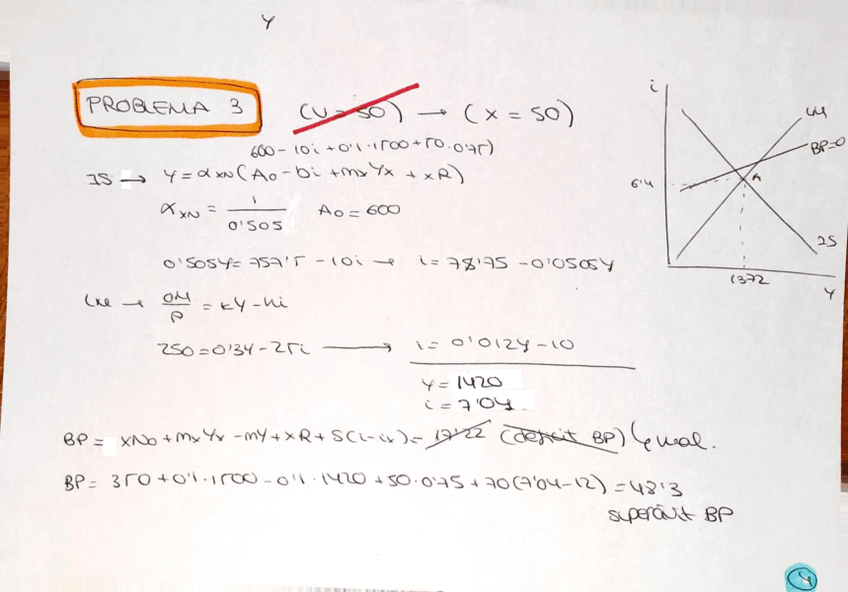 Y
PROBLEMA 3 (V = 50) → (X = 50)
600 - 10i + 0'1·1500 + 50·0'75)
IS → Y = αXN (A0 - bi + mxYx + xR)
αXN = 1/0'505 A0 = 600
0'505Y = 757'5 - 10i → i = 75'75 - 0'0505Y
→ OM/P = kY - hi
250 = 0'3Y - 25i → i = 0'012Y - 10
Y = 1420
i = 7'04
BP = XN0 + mxYx - mY + xR + S(i-ix) = 17'22 (déficit BP) mal.
BP = 350 + 0'1·1500 - 0'1·1420 + 50·0'75 + 70(7'04-12) = 48'3
superávit BP
i
LM
BP=0
6'4
A
IS
1372
Y
4